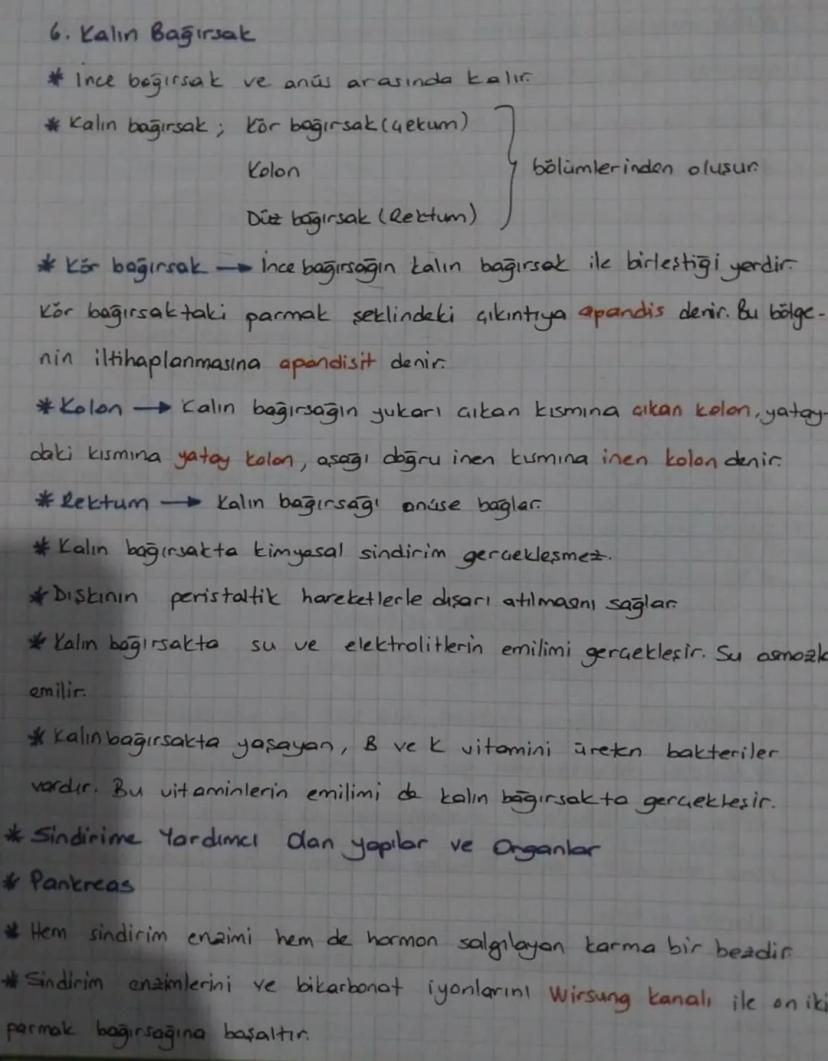 6. Kalın Bağırsak
* İnce bağırsak ve anüs arasında kalır.
* Kalın bağırsak ; Kör bağırsak (Çekum)
Kolon
bölümlerinden oluşur.
Düz bağırsak (Rektum)
* Kör bağırsak → İnce bağırsağın kalın bağırsak ile birleştiği yerdir.
Kör bağırsaktaki parmak şeklindeki çıkıntıya apandis denir. Bu bölge-
nin iltihaplanmasına apandisit denir.
* Kolon → Kalın bağırsağın yukarı çıkan kısmına çıkan kolon, yatay-
daki kısmına yatay kolon, aşağı doğru inen kısmına inen kolon denir.
* Rektum → Kalın bağırsağı anüse bağlar.
* Kalın bağırsakta kimyasal sindirim gerçekleşmez.
* Dışkının peristaltik hareketlerle dışarı atılmasını sağlar.
* Kalın bağırsakta su ve elektrolitlerin emilimi gerçekleşir. Su osmozla
emilir.
* Kalın bağırsakta yaşayan, B ve K vitamini üretkn bakteriler
vardır. Bu vitaminlerin emilimi de kalın bağırsakta gerçekleşir.
* Sindirime Yardımcı Olan yapılar ve Organlar
* Pankreas
* Hem sindirim enzimi hem de hormon salgılayan karma bir bezdir.
* Sindirim enzimlerini ve bikarbonat iyonlarını Wirsung kanalı ile on iki
parmak bağırsağına boşaltır.